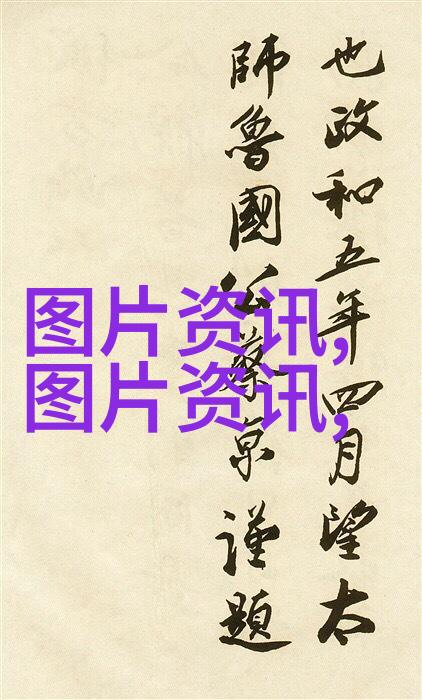 也政和五年四月望太
師魯國公蔡京謹題
图片资讯,
图片资讯,